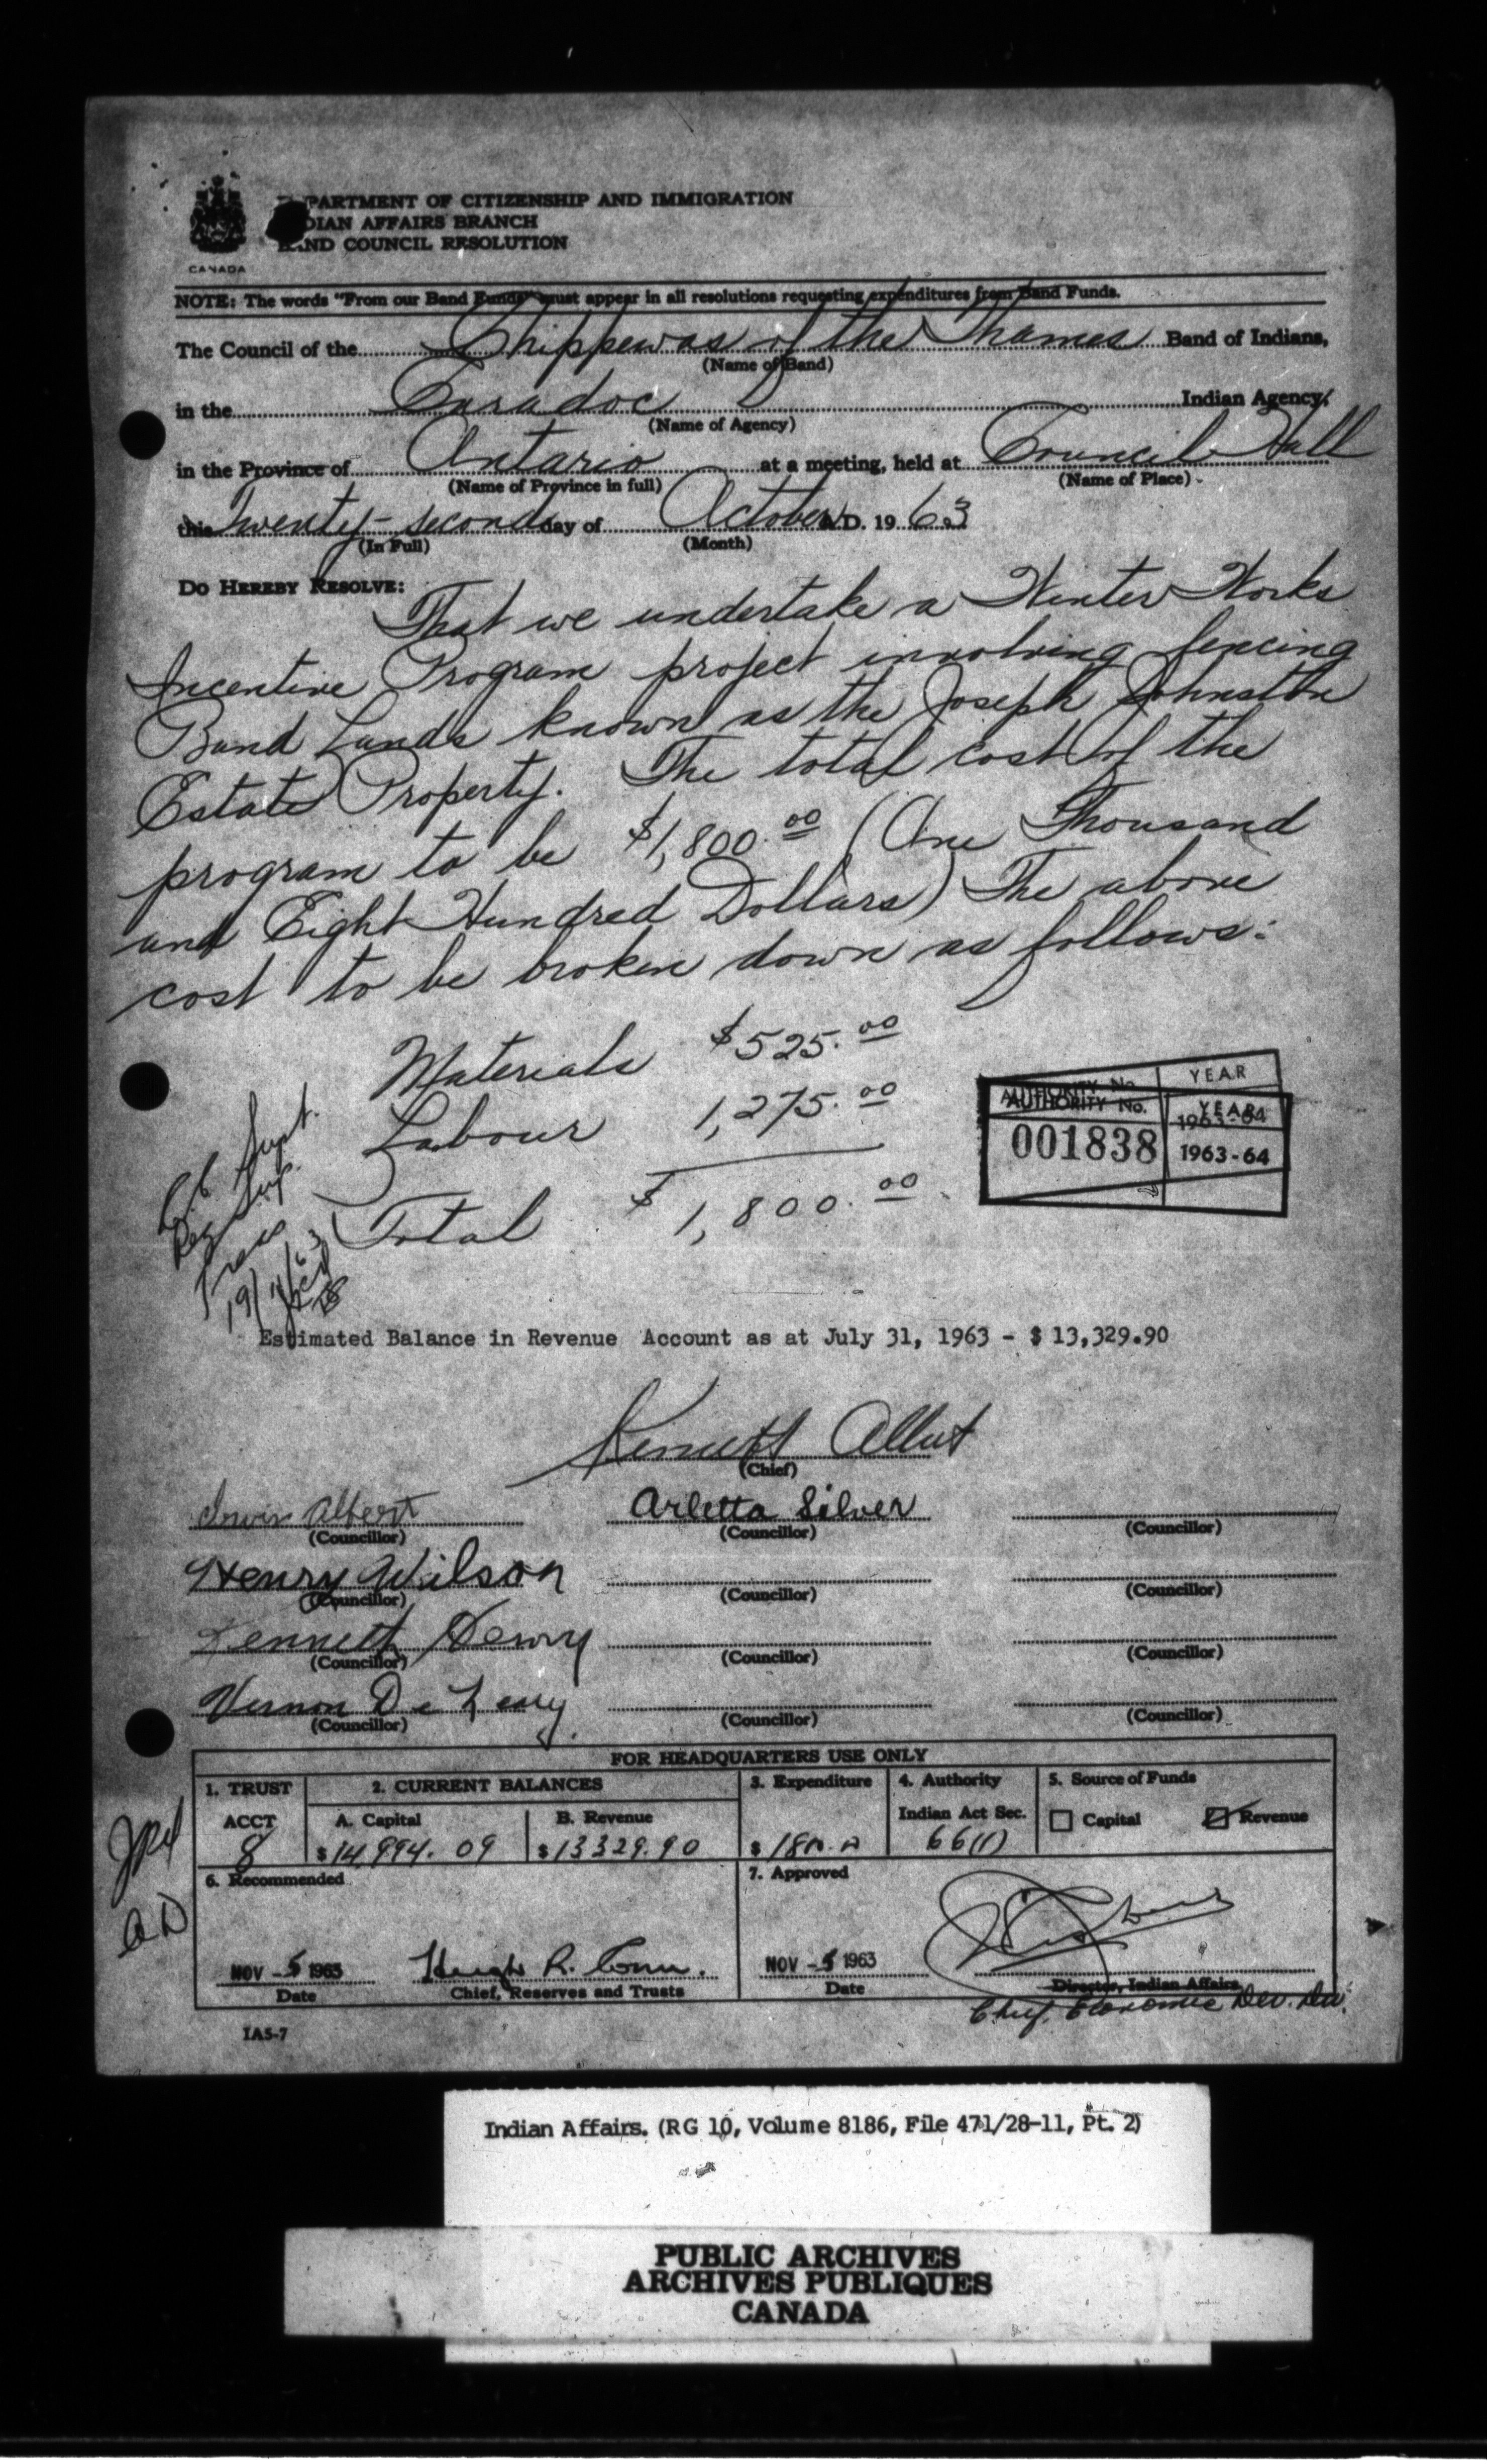 CANADA
DEPARTMENT OF CITIZENSHIP AND IMMIGRATION
INDIAN AFFAIRS BRANCH
BAND COUNCIL RESOLUTION
NOTE: The words "From our Band Funds" must appear in all resolutions requesting expenditures from Band Funds.
The Council of the Chippewas of the Thames Band of Indians,
(Name of Band)
in the Caradoc Indian Agency,
(Name of Agency)
in the Province of Ontario at a meeting, held at Council Hall
(Name of Province in full) (Name of Place)
this Twenty-second day of October A.D. 1963
(In Full) (Month)
DO HEREBY RESOLVE:
That we undertake a Winter Works
Incentive Program project involving fencing
Band Lands known as the Joseph Johnston
Estate Property. The total cost of the
program to be $1,800.00 (One Thousand
and Eight Hundred Dollars) The above
cost to be broken down as follows:
Materials $525.00
Labour 1,275.00
Total $1,800.00
AUTHORITY No. YEAR
AUTHORITY No. YEAR
1963-64
001838 1963-64
Supt.
Reg Sup.
Treas
19/11/63
Estimated Balance in Revenue Account as at July 31, 1963 - $ 13,329.90
Kenneth Albert
(Chief)
Irwin Albert Arletta Silver
(Councillor) (Councillor) (Councillor)
Henry Wilson
(Councillor) (Councillor) (Councillor)
Kenneth Henry
(Councillor) (Councillor) (Councillor)
Vernon DeLeary
(Councillor) (Councillor) (Councillor)
FOR HEADQUARTERS USE ONLY
1. TRUST 2. CURRENT BALANCES 3. Expenditure 4. Authority 5. Source of Funds
ACCT A. Capital B. Revenue Indian Act Sec. Capital Revenue
8 $14,994.09 $13329.90 $1800.00 66(1)
6. Recommended 7. Approved
NOV -5 1963 Hugh R. Conn. NOV -5 1963
Date Chief, Reserves and Trusts Date Director, Indian Affairs
Chief, Economic Dev. Div.
IA5-7
Indian Affairs. (RG 10, Volume 8186, File 471/28-11, Pt. 2)
PUBLIC ARCHIVES
ARCHIVES PUBLIQUES
CANADA